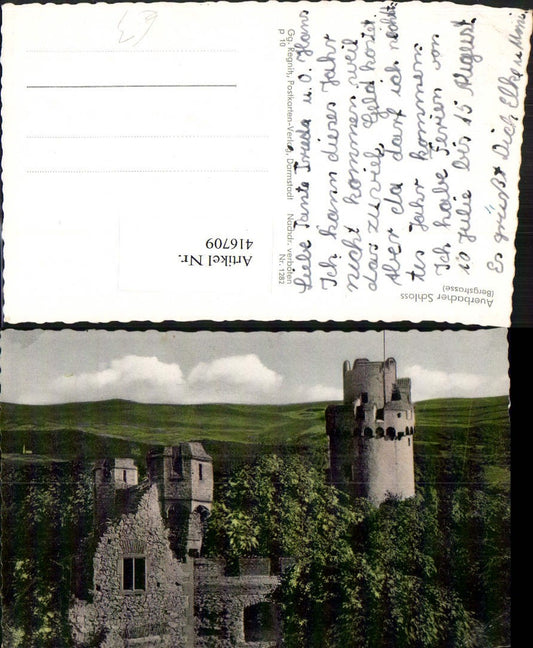 Auerbacher Schloss
(Bergstrasse)
Liebe Tante Frieda u. O. Hans
Ich kann dieses Jahr
nicht kommen weil
das zuviel Geld kostet
Aber da darf ich nächs-
tes Jahr kommen.
Ich habe Ferien von
15 Julie bis 15 August
Es grüßt Dich Elke u.
Gg. Regnith, Postkarten-Verlag, Darmstadt Nachdr. verboten
p 10 Nr. 1282
Artikel Nr.
416709